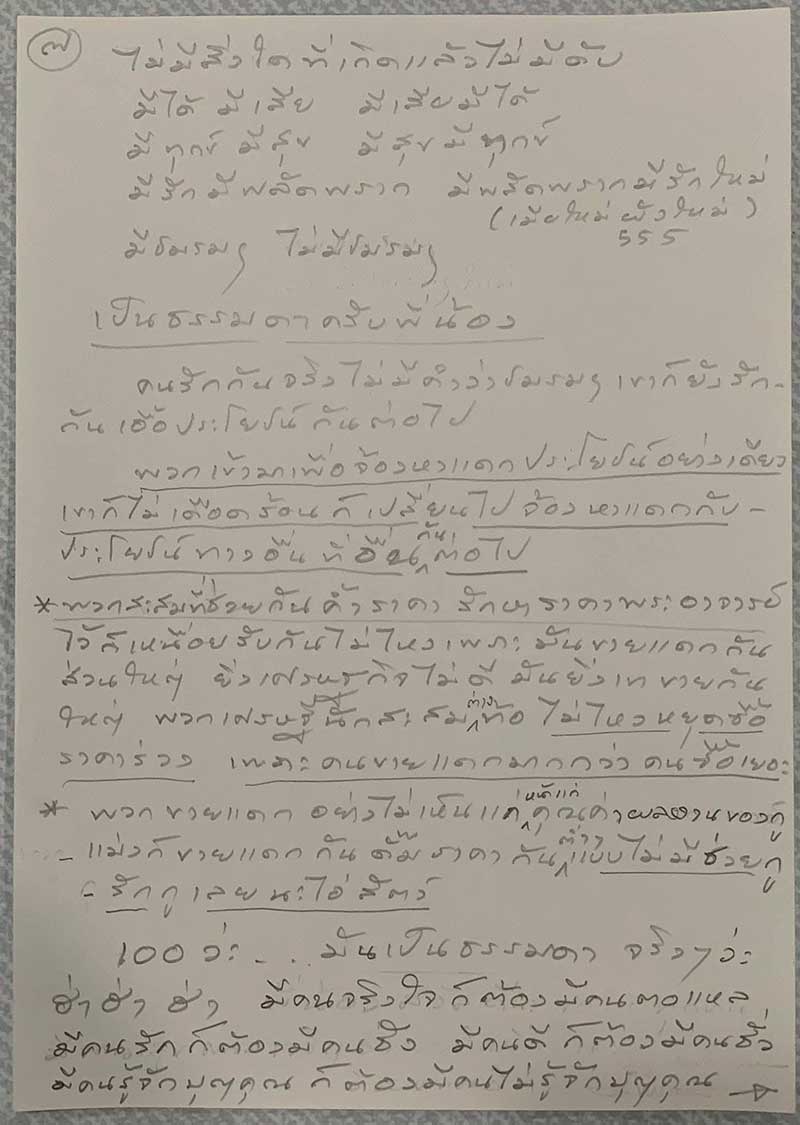 ๗
ไม่มีสิ่งใดที่เกิดแล้วไม่มีดับ
มีได้ มีเสีย มีเสียมีได้
มีทุกข์ มีสุข มีสุขมีทุกข์
มีรักมีพลัดพราก มีพลัดพรากมีรักใหม่
(เมียใหม่ ผัวใหม่)
555
มีชมรมฯ ไม่มีชมรมฯ
เป็นธรรมดาครับพี่น้อง
คนรักกันจริงไม่มีคำว่าชมรมฯ เขาก็ยังรัก-
กันเอื้อประโยชน์กันต่อไป
พวกเข้ามาเพื่อจ้องหาแดกประโยชน์อย่างเดียว
เขาก็ไม่เดือดร้อนก็เปลี่ยนไปจ้องหาแดกกับ-
ประโยชน์ทางอื่นที่อื่นกันต่อไป
* พวกสะสมที่ช่วยกันค้ำราคา รักษาราคาพระอาจารย์
ไว้ก็เหนื่อยรับกันไม่ไหวเพราะมันขายแดกกัน
ส่วนใหญ่ ยิ่งเศรษฐกิจไม่ดีมันยิ่งเทขายกัน
ใหญ่ พวกเศรษฐีนักสะสมต่างท้อ ไม่ไหวหยุดซื้อ
ราคาร่วง เพราะคนขายแดกมากกว่าคนซื้อเยอะ
* พวกขายแดก อย่างไม่เห็นแก่หน้าแก่คุณค่าผลงานของกู
- แม่งก็ขายแดกกันดั๊มราคากันต่ำๆแบบไม่มีช่วยกู
- รักกูเลยนะไอ่สัตว์
100 ว่ะ... มันเป็นธรรมดา จริงๆว่ะ
ฮ่า ฮ่า ฮ่า มีคนจริงใจก็ต้องมีคนตอแหล
มีคนรักก็ต้องมีคนชัง มีคนดีก็ต้องมีคนชั่ว
มีคนรู้จักบุญคุณ ก็ต้องมีคนไม่รู้จักบุญคุณ →